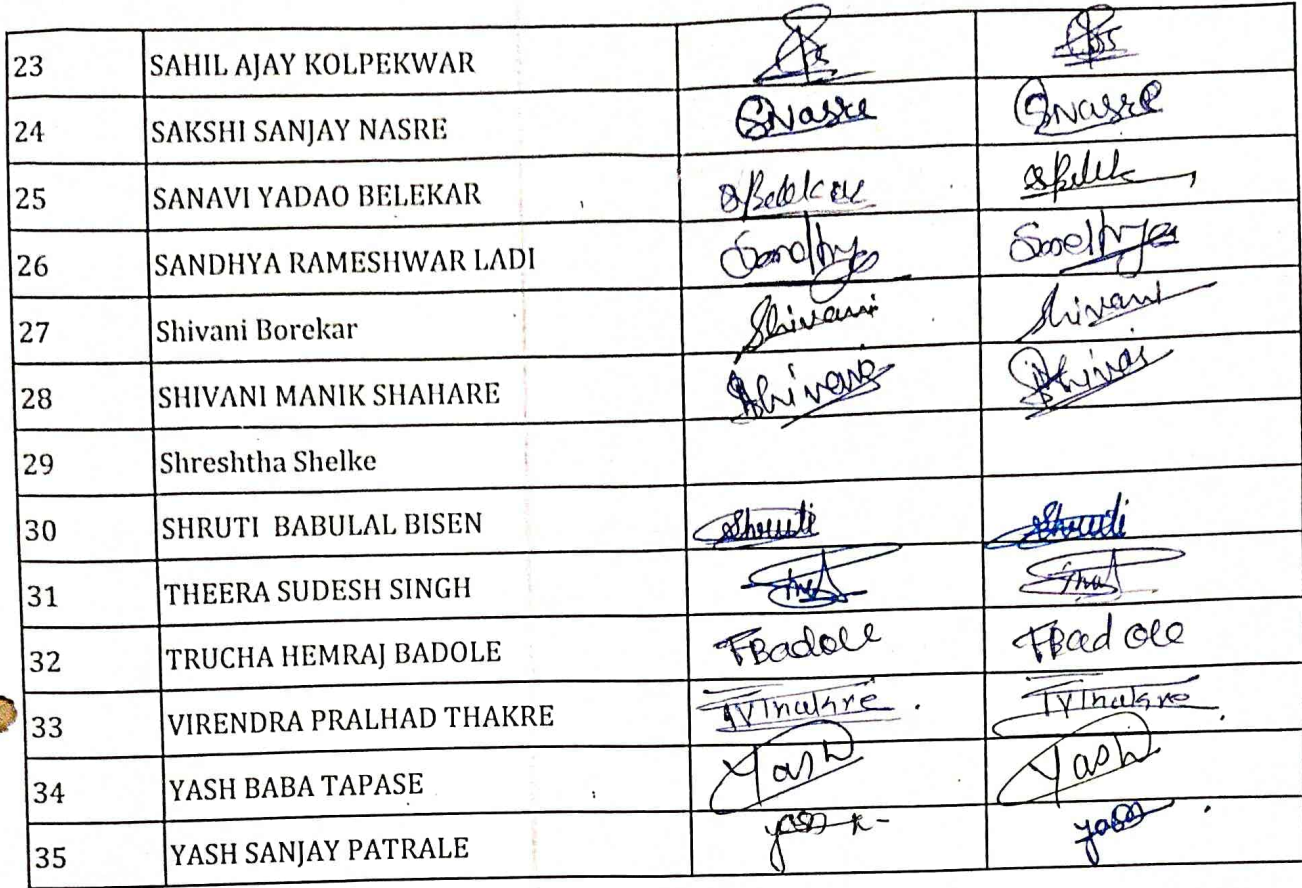 23 SAHIL AJAY KOLPEKWAR
24 SAKSHI SANJAY NASRE SNasre SNasre
25 SANAVI YADAO BELEKAR
26 SANDHYA RAMESHWAR LADI Sandhya Sandhya
27 Shivani Borekar Shivani Shivani
28 SHIVANI MANIK SHAHARE Shivani
29 Shreshtha Shelke
30 SHRUTI BABULAL BISEN Shruti Shruti
31 THEERA SUDESH SINGH
32 TRUCHA HEMRAJ BADOLE TBadole TBadole
33 VIRENDRA PRALHAD THAKRE
34 YASH BABA TAPASE Yash Yash
35 YASH SANJAY PATRALE